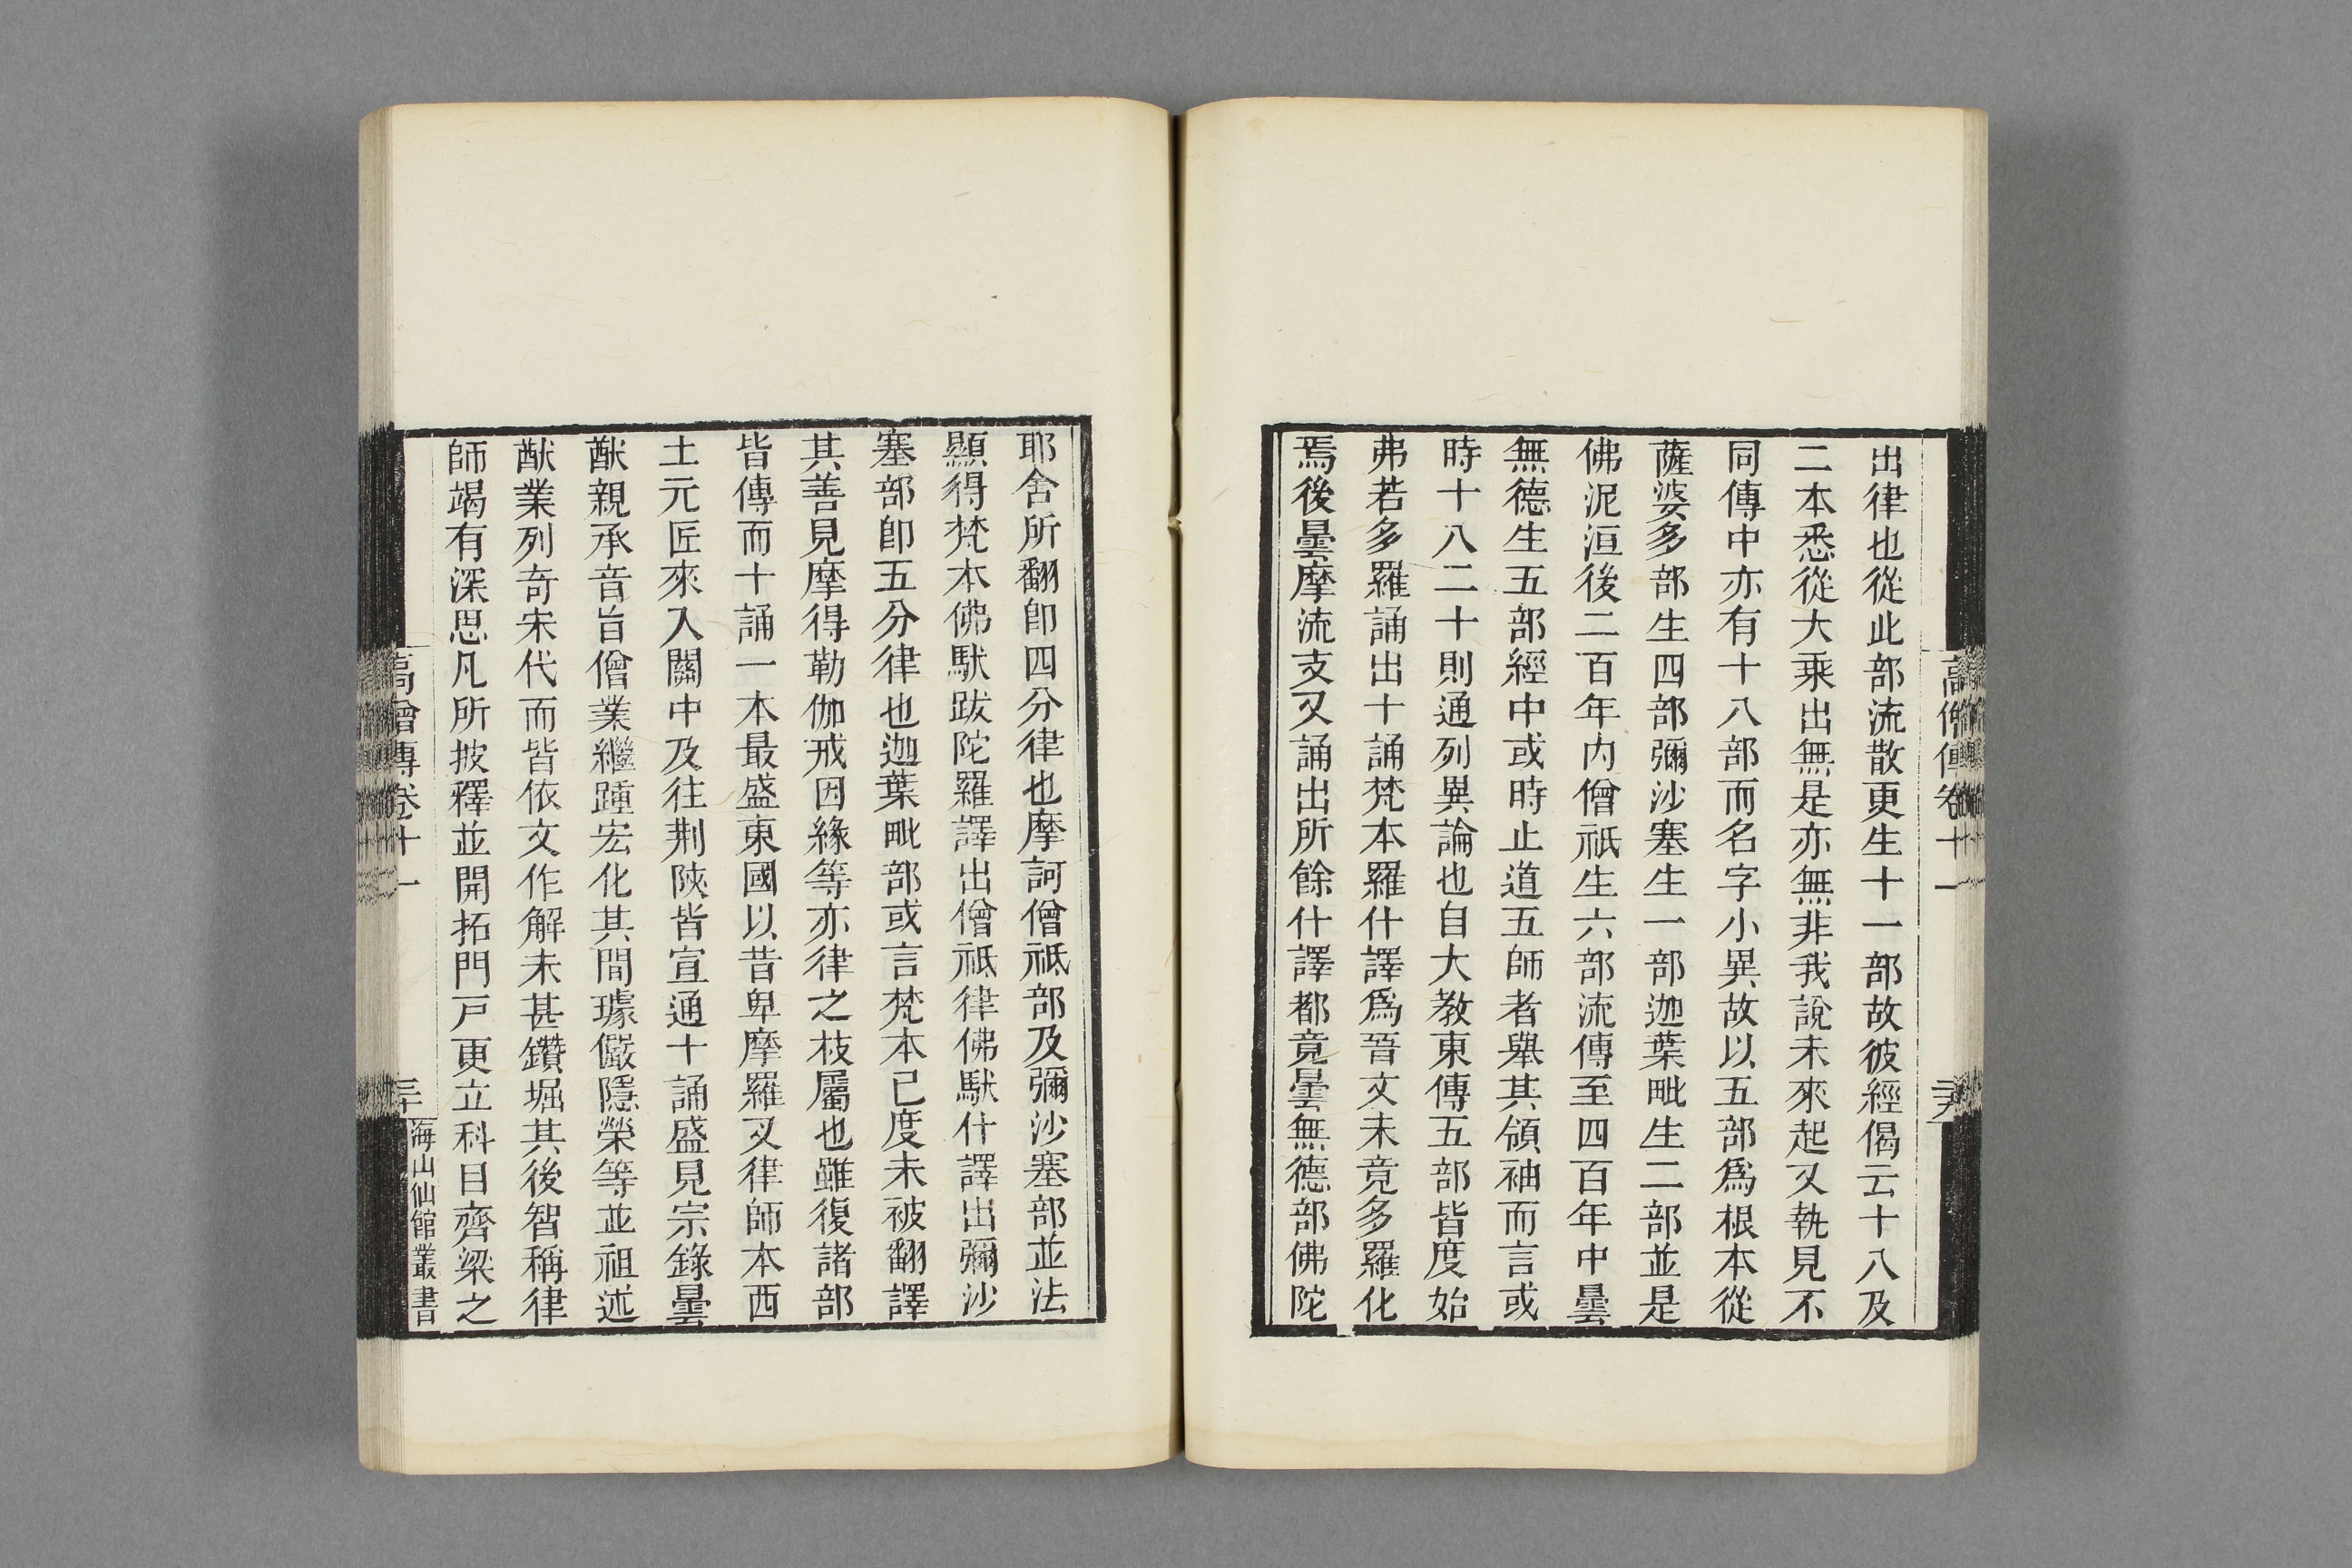 出律也從此部流散更生十一部故彼經偈云十八及
二本悉從大乘出無是亦無非我說未來起又執見不
同傳中亦有十八部而名字小異故以五部爲根本從
薩婆多部生四部彌沙塞生一部迦葉毗生二部並是
佛泥洹後二百年内僧祇生六部流傳至四百年中曇
無德生五部經中或時止道五師者舉其領袖而言或
時十八二十則通列異論也自大教東傳五部皆度始
弗若多羅誦出十誦梵本羅什譯爲晉文未竟多羅化
焉後曇摩流支又誦出所餘什譯都竟曇無德部佛陀
高僧傳卷十一
耶舍所翻卽四分律也摩訶僧祇部及彌沙塞部並法
顯得梵本佛馱跋陀羅譯出僧祇律佛馱什譯出彌沙
塞部卽五分律也迦葉毗部或言梵本已度未被翻譯
其善見摩得勒伽戒因緣等亦律之枝屬也雖復諸部
皆傳而十誦一本最盛東國以昔卑摩羅叉律師本西
土元匠來入關中及往荆陝皆宣通十誦盛見宗錄曇
猷親承音旨僧業繼踵宏化其間璩儼隱榮等並祖述
猷業列奇宋代而皆依文作解未甚鑽堀其後智稱律
師竭有深思凡所披釋並開拓門戸更立科目齊梁之
高僧傳卷十一
三十
海山仙館叢書